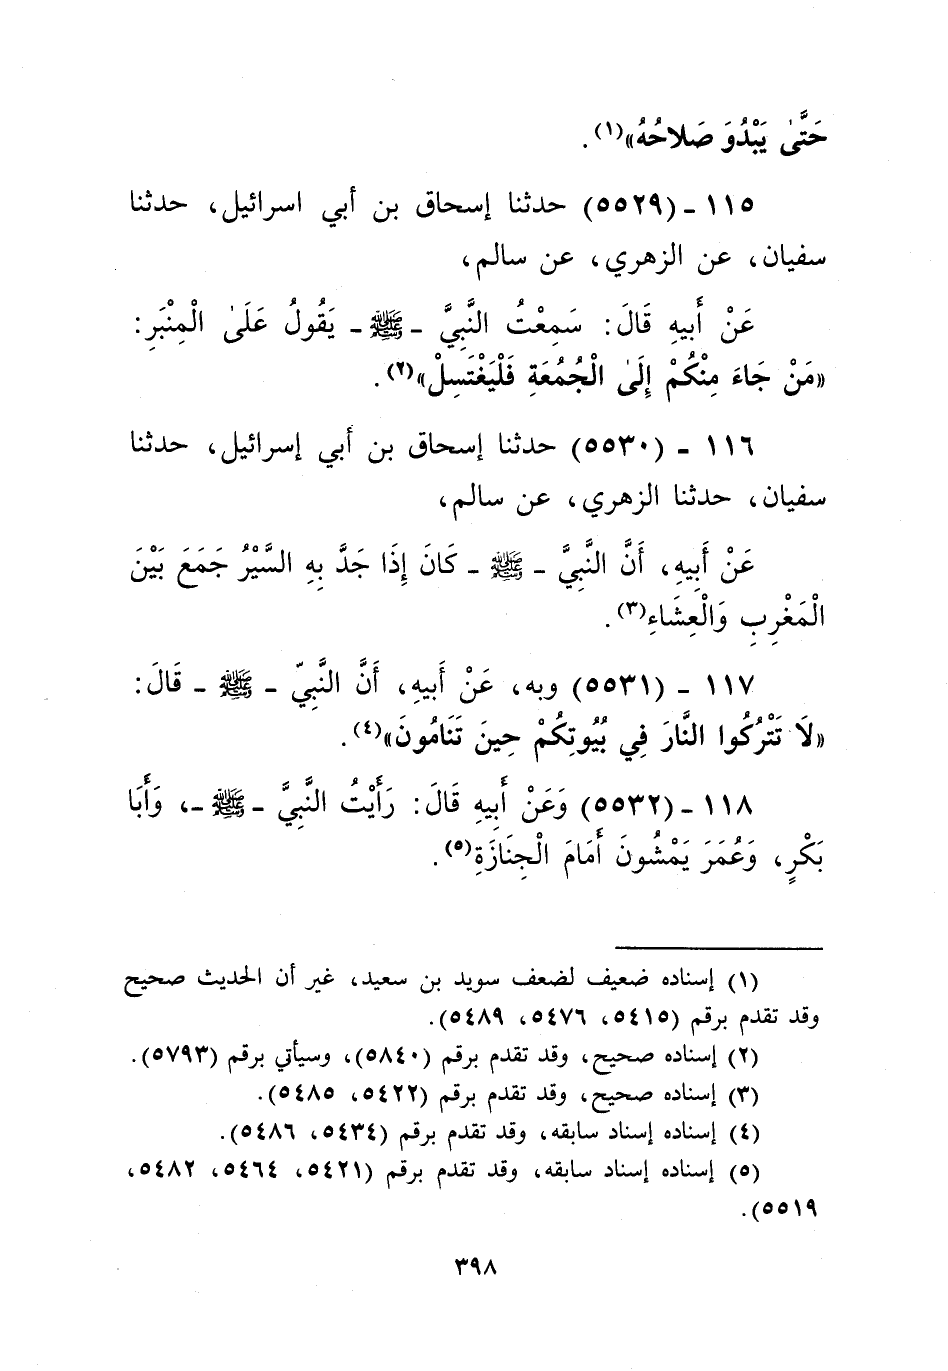 حَتَّىٰ يَبْدُوَ صَلاَحُهُ»(١).
١١٥ ـ (٥٥٢٩) حدثنا إسحاق بن أبي اسرائيل، حدثنا
سفيان، عن الزهري، عن سالم،
عَنْ أَبِيهِ قَالَ: سَمِعْتُ النَّبِيَّ ـ ﷺ ـ يَقُولُ عَلَىٰ الْمِنْبَرِ:
«مَنْ جَاءَ مِنْكُمْ إِلَىٰ الْجُمُعَةِ فَلْيَغْتَسِلْ»(٢).
١١٦ ـ (٥٥٣٠) حدثنا إسحاق بن أبي إسرائيل، حدثنا
سفيان، حدثنا الزهري، عن سالم،
عَنْ أَبِيهِ، أَنَّ النَّبِيَّ ـ ﷺ ـ كَانَ إِذَا جَدَّ بِهِ السَّيْرُ جَمَعَ بَيْنَ
الْمَغْرِبِ وَالْعِشَاءِ(٣).
١١٧ ـ (٥٥٣١) وبه، عَنْ أَبِيهِ، أَنَّ النَّبِيّ ـ ﷺ ـ قَالَ:
«لاَ تَتْرُكُوا النَّارَ فِي بُيُوتِكُمْ حِينَ تَنَامُونَ»(٤).
١١٨ ـ (٥٥٣٢) وَعَنْ أَبِيهِ قَالَ: رَأَيْتُ النَّبِيَّ ـ ﷺ ـ، وَأَبَا
بَكْرٍ، وَعُمَرَ يَمْشُونَ أَمَامَ الْجِنَازَةِ(٥).
(١) إسناده ضعيف لضعف سويد بن سعيد، غير أن الحديث صحيح
وقد تقدم برقم (٥٤١٥، ٥٤٧٦، ٥٤٨٩).
(٢) إسناده صحيح، وقد تقدم برقم (٥٨٤٠)، وسيأتي برقم (٥٧٩٣).
(٣) إسناده صحيح، وقد تقدم برقم (٥٤٢٢، ٥٤٨٥).
(٤) إسناده إسناد سابقه، وقد تقدم برقم (٥٤٣٤، ٥٤٨٦).
(٥) إسناده إسناد سابقه، وقد تقدم برقم (٥٤٢١، ٥٤٦٤، ٥٤٨٢،
٥٥١٩).
٣٩٨